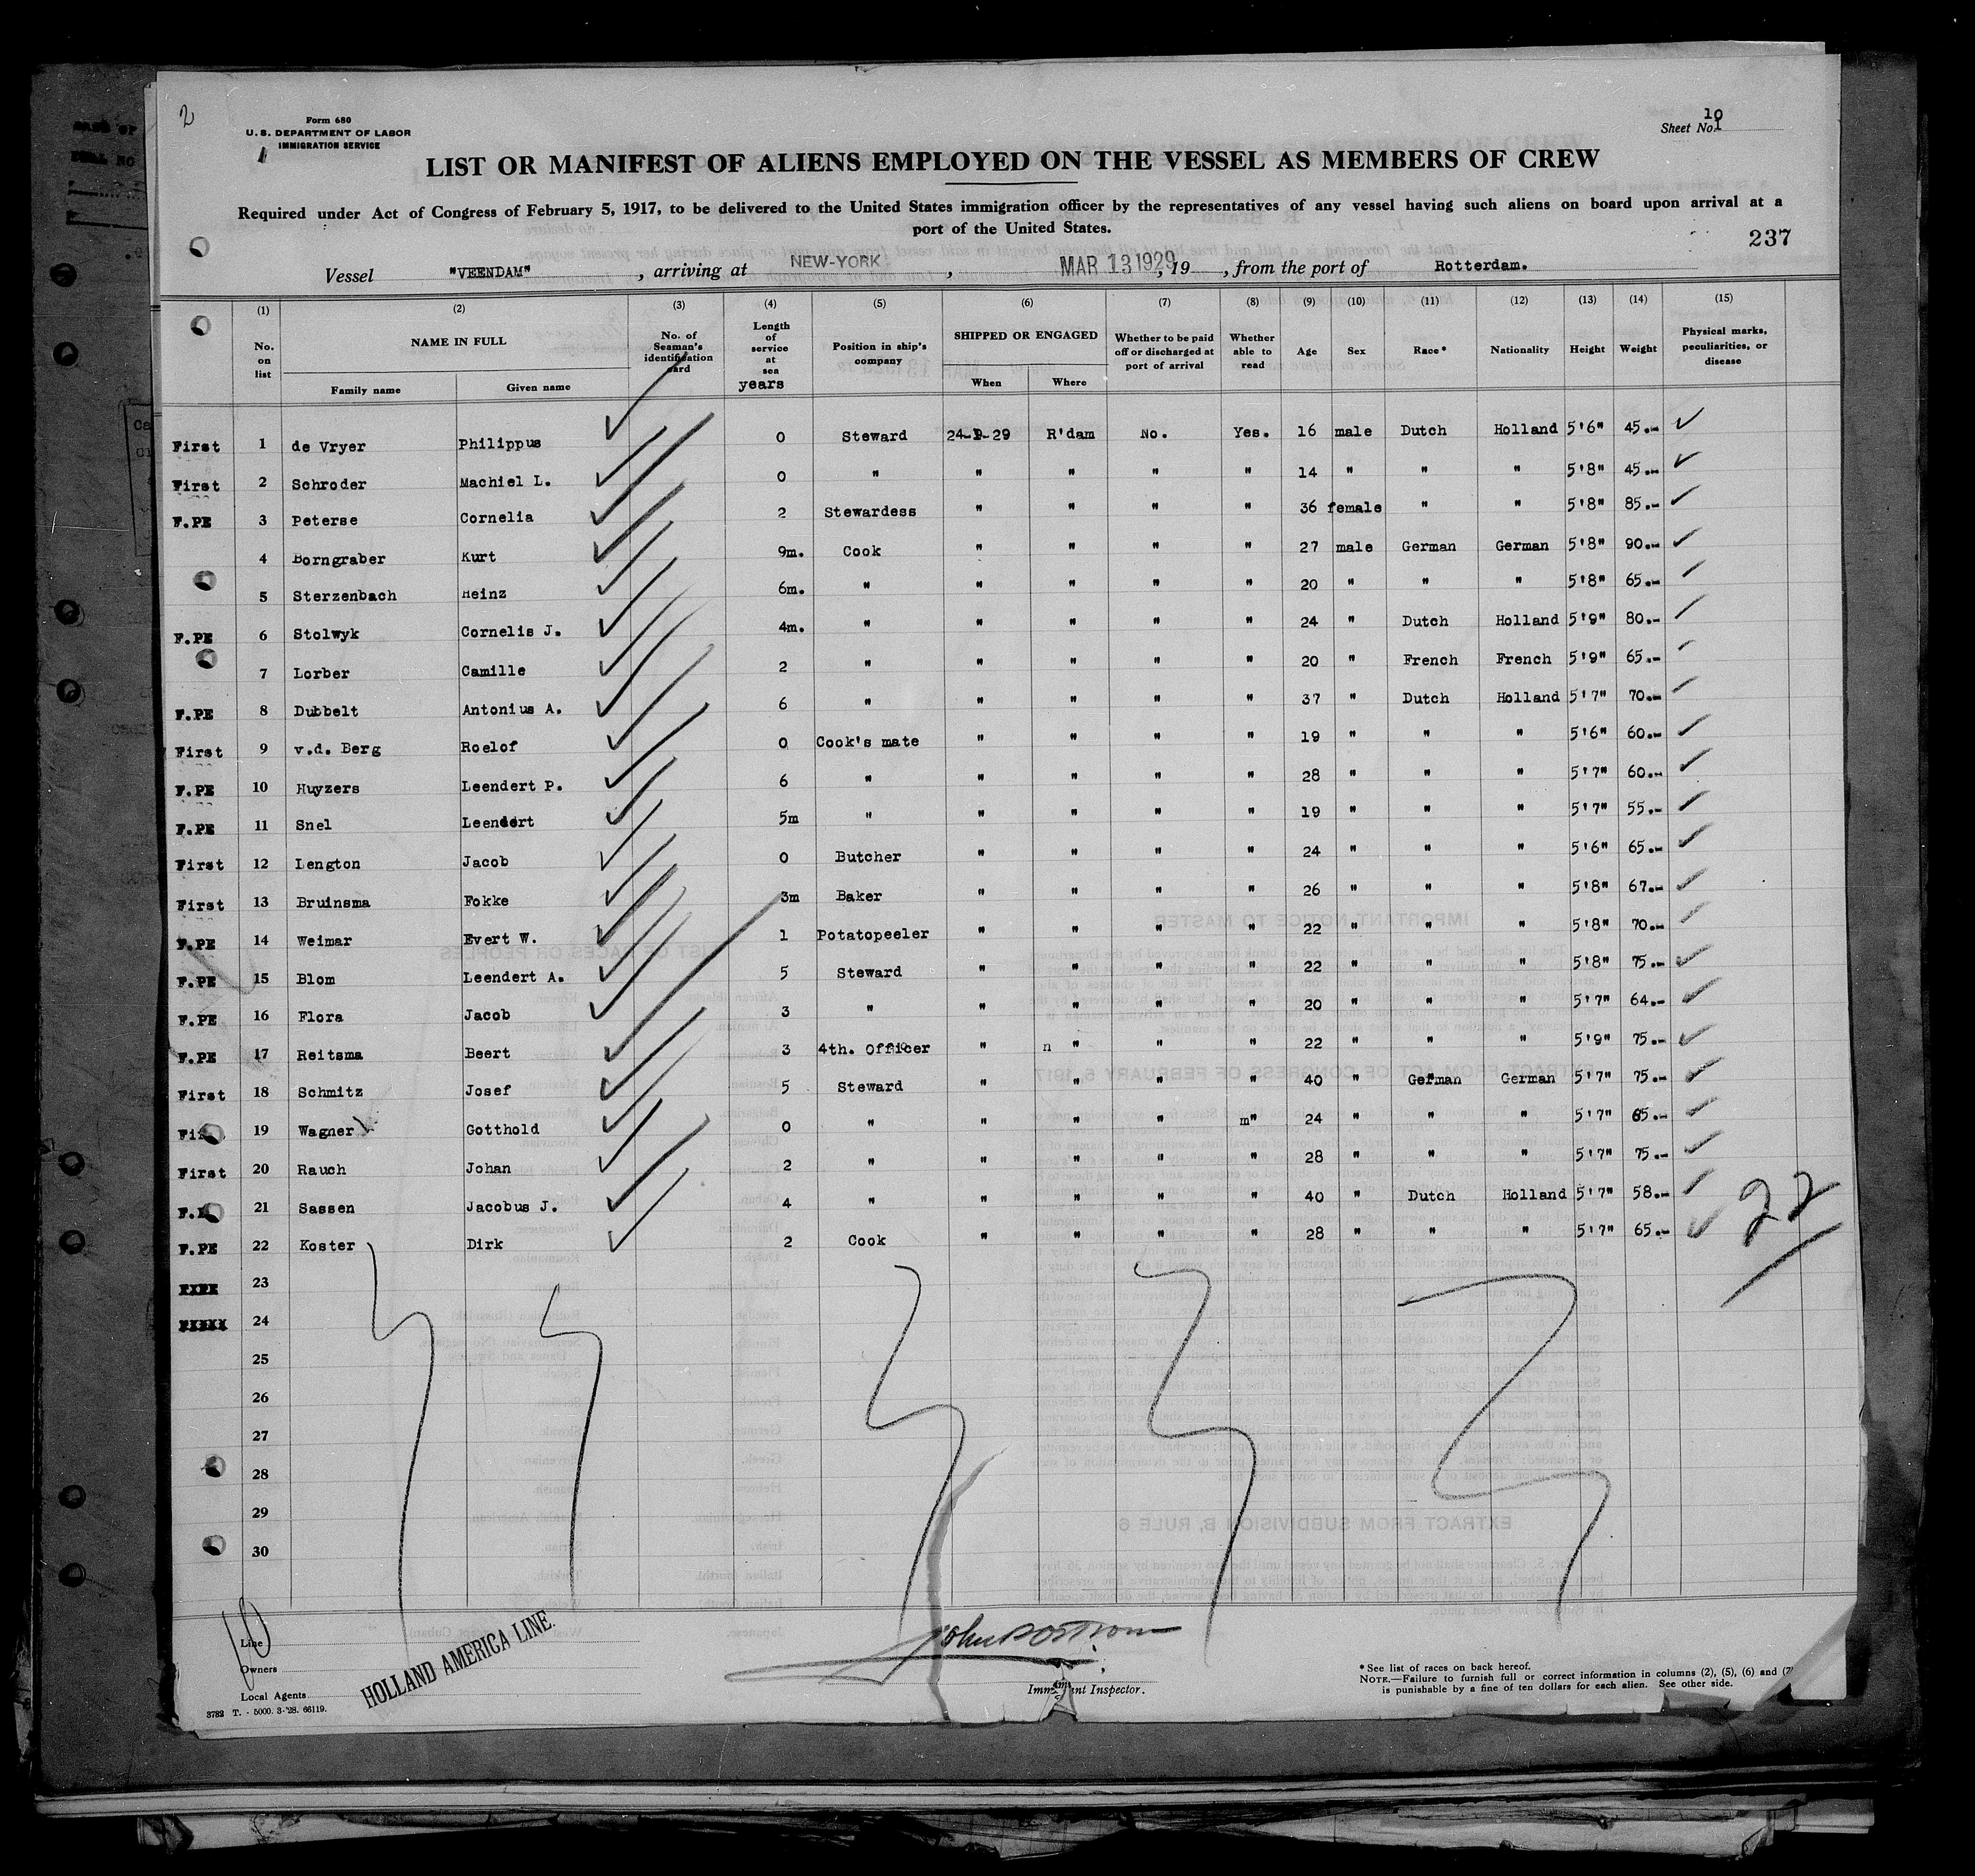 2
Form 680
U. S. DEPARTMENT OF LABOR
IMMIGRATION SERVICE
10
Sheet No. 1
LIST OR MANIFEST OF ALIENS EMPLOYED ON THE VESSEL AS MEMBERS OF CREW
Required under Act of Congress of February 5, 1917, to be delivered to the United States immigration officer by the representatives of any vessel having such aliens on board upon arrival at a
port of the United States.
237
Vessel "VEENDAM" , arriving at NEW-YORK , MAR 13 1929 , 19 , from the port of Rotterdam.
(1) (2) (3) (4) (5) (6) (7) (8) (9) (10) (11) (12) (13) (14) (15)
No. on list NAME IN FULL Family name Given name No. of Seaman's identification card Length of service at sea years Position in ship's company SHIPPED OR ENGAGED When Where Whether to be paid off or discharged at port of arrival Whether able to read Age Sex Race* Nationality Height Weight Physical marks, peculiarities, or disease
First 1 de Vryer Philippus 0 Steward 24-2-29 R'dam No. Yes. 16 male Dutch Holland 5'6" 45.-
First 2 Schroder Machiel L. 0 " " " " " 14 " " " 5'8" 45.-
F.PE 3 Peterse Cornelia 2 Stewardess " " " " 36 female " " 5'8" 85.-
4 Borngraber Kurt 9m. Cook " " " " 27 male German German 5'8" 90.-
5 Sterzenbach Heinz 6m. " " " " " 20 " " " 5'8" 65.-
F.PE 6 Stolwyk Cornelis J. 4m. " " " " " 24 " Dutch Holland 5'9" 80.-
7 Lorber Camille 2 " " " " " 20 " French French 5'9" 65.-
F.PE 8 Dubbelt Antonius A. 6 " " " " " 37 " Dutch Holland 5'7" 70.-
First 9 v.d. Berg Roelof 0 Cook's mate " " " " 19 " " " 5'6" 60.-
F.PE 10 Huyzers Leendert P. 6 " " " " " 28 " " " 5'7" 60.-
F.PE 11 Snel Leendert 5m " " " " " 19 " " " 5'7" 55.-
First 12 Lengton Jacob 0 Butcher " " " " 24 " " " 5'6" 65.-
First 13 Bruinsma Fokke 3m Baker " " " " 26 " " " 5'8" 67.-
F.PE 14 Weimar Evert W. 1 Potatopeeler " " " " 22 " " " 5'8" 70.-
F.PE 15 Blom Leendert A. 5 Steward " " " " 22 " " " 5'8" 75.-
F.PE 16 Flora Jacob 3 " " " " " 20 " " " 5'7" 64.-
F.PE 17 Reitsma Beert 3 4th. Officer " n " " " 22 " " " 5'9" 75.-
First 18 Schmitz Josef 5 Steward " " " " 40 " German German 5'7" 75.-
Fi 19 Wagner Gotthold 0 " " " " m" 24 " " " 5'7" 65.-
First 20 Rauch Johan 2 " " " " " 28 " " " 5'7" 75.-
F. 21 Sassen Jacobus J. 4 " " " " " 40 " Dutch Holland 5'7" 58.-
F.PE 22 Koster Dirk 2 Cook " " " " 28 " " " 5'7" 65.-
22
23
24
25
26
27
28
29
30
10
Line
Owners
Local Agents
HOLLAND AMERICA LINE.
3782 T. - 5000. 3-'28. 66119.
Inspector.
*See list of races on back hereof.
NOTE.—Failure to furnish full or correct information in columns (2), (5), (6) and (7)
is punishable by a fine of ten dollars for each alien. See other side.